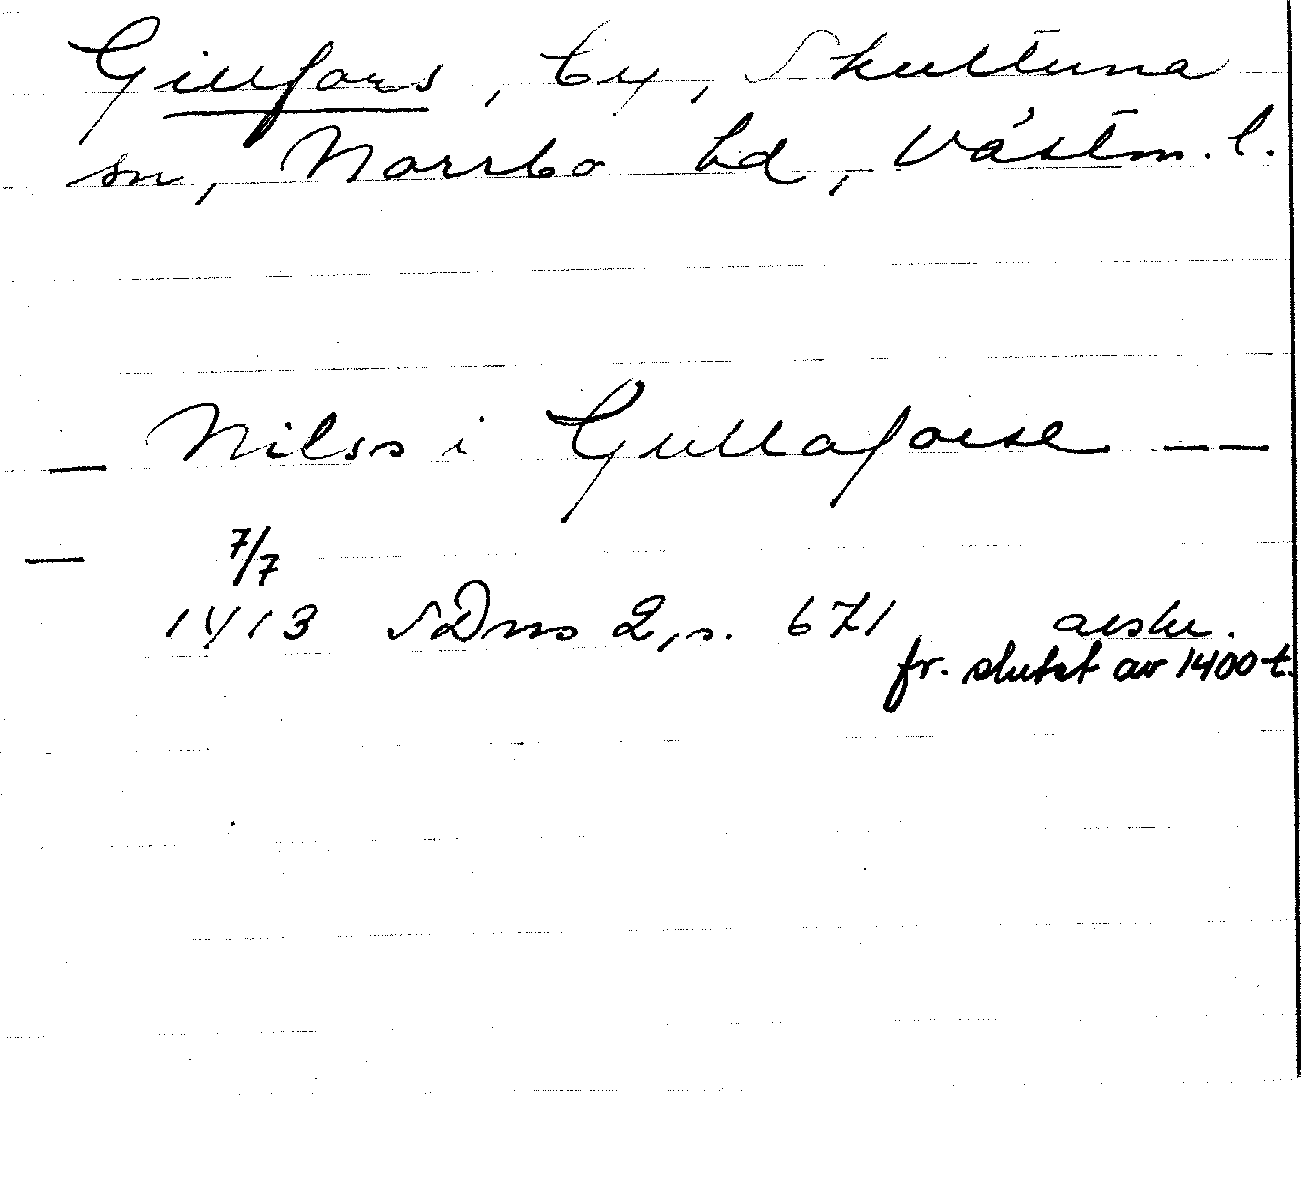 Gillfors, by, Skultuna
sn, Norrbo hd, Västm. l.
— Nilss i Gullaforse — —
— 7/7
1413 SDns 2, s. 671 avskr.
fr. slutet av 1400-t.